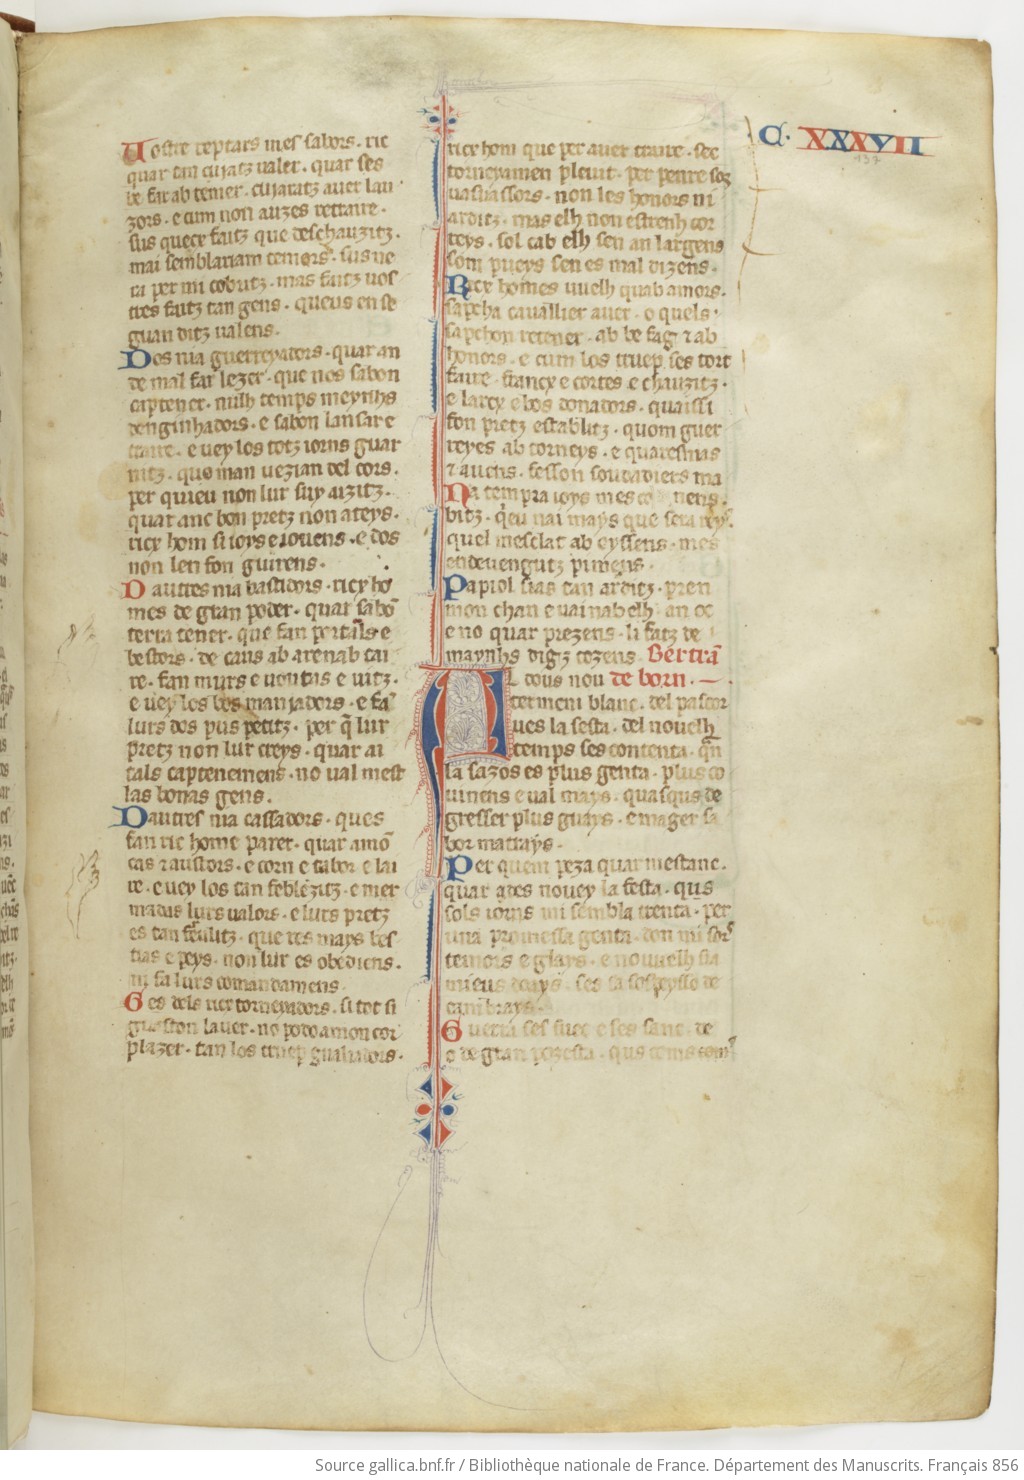 C. XXXVII
137
Uostre reptars mes sabors. ric
quar tan cujatz ualer. quar ses
be far ab temer. cujaratz auer lau
zors. e cum non auzes retraire.
sus quecx faitz que deschauzitz.
mai semblariam temors. sius ne
ra per mi cobritz. mas faitz uos
tres faitz tan gens. queus en se
guan ditz ualens.
Dos nia guerreyadors. quar an
de mal far lezer. que nos sabon
captener. nulh temps meynhs
denginhadors. e sabon lansar e
traire. e uey los totz iorns guar
nitz. quo man uezian del cors.
per quieu non lur suy aizitz.
quar anc bon pretz non ateys.
ricx hom si ioys e iouens. e dos
non len fon guirens.
Dautres nia bastidors. ricx ho
mes de gran poder. quar sabō
terra tener. que fan portals e
bestors. de caus ab aren ab cai
re. fan murs e uoutas e uitz.
e uey los bos manjadors. e fa
lurs dos pus petitz. per q̄ lur
pretz non lur creys. quar ai
tals captenemens. no ual mest
las bonas gens.
Dautres nia cassadors. ques
fan ric home parer. quar amō
cas & austors. e corn e tabor e lai
re. e uey los tan feblezitz. e mer
madas lurs ualors. e lurs pretz
es tan freulitz. que res mays bes
tias e peys. non lur es obediens.
ni fa lurs comandamens.
Ges dels ricx torneyadors. si tot si
guaston lauer. no podo a mon cor
plazer. tan los truep gualiadors.
ricx hom que per auer traire. sec
torneyamen pleuit. per penre sos
uasuassors. non les honors ni
arditz. mas elh non estrenh cor
reys. sol cab elh sen an largens
som pueys sen es mal dizens.
Ricx homes uuelh quab amors.
sapcha cauallier auer. o quels
sapchon retener. ab be fag & ab
honors. e cum los truep ses tort
faire. francx e cortes e chauzitz.
e larcx e bos donadors. quaissi
fon pretz establitz. quom guer
reyes ab torneys. e quaresmas
& auens. fesson soudadiers ma
Na tempra ioys mes nens.
bitz. q̄eu nai mays que sera reys.
quel mesclat ab eyssens. mes
endeuengutz pimens.
Papiol sias tan arditz. pren
mon chan e uai nab elh. an oc
e no quar prezens. li fatz de
maynhs digz cozens. Bertrā
de born.
L dous nou
termeni blanc. del pascor
ues la festa. del nouelh
temps ses contenta. q̄n
la sazos es plus genta. plus co
uinens e ual mays. quasqus de
gresser plus guays. e mager sa
bor matrays.
Per quem peza quar mestanc.
quar ades nouey la festa. qus
sols iorns mi sembla trenta. per
una promessa genta. don mi sor
temors e glays. e nouuelh sia
mieus doays. ses sa sospeysso de
canbrays.
Guerra ses fuec e ses sanc. de
o de gran pozesta. qus coms